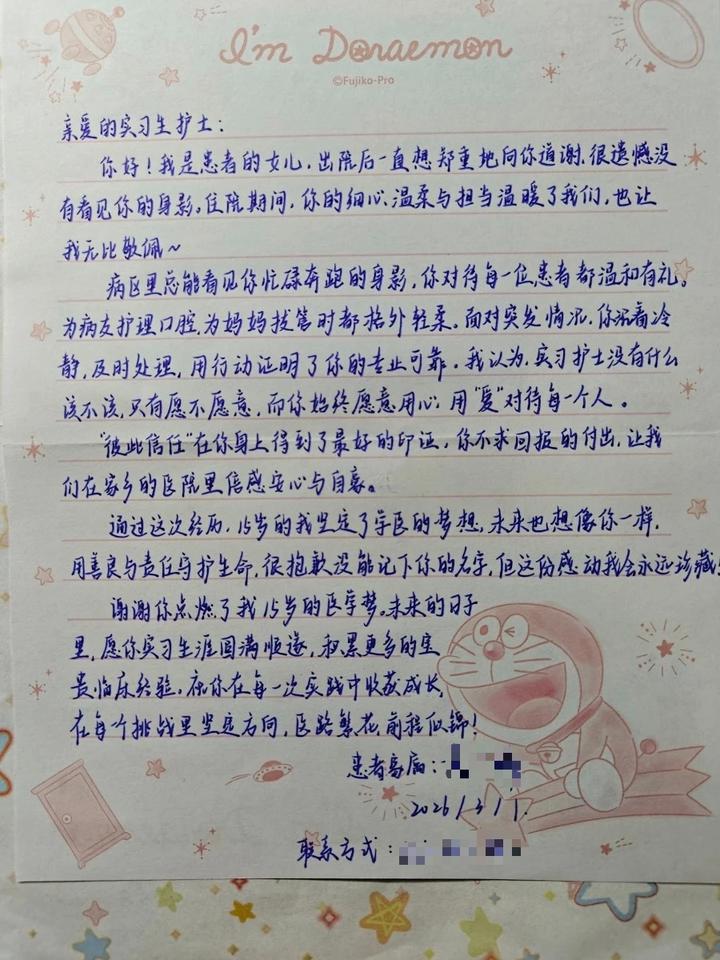 I'm Doraemon
©Fujiko-Pro
亲爱的实习生护士：
你好！我是患者的女儿，出院后一直想郑重地向你道谢，很遗憾没
有看见你的身影。住院期间，你的细心、温柔与担当温暖了我们，也让
我无比敬佩～
病区里总能看见你忙碌奔跑的身影，你对待每一位患者都温和有礼。
为病友护理口腔，为妈妈拔管时都格外轻柔。面对突发情况，你沉着冷
静，及时处理，用行动证明了你的专业可靠。我认为，实习护士没有什么
该不该，只有愿不愿意，而你始终愿意用心，用“爱”对待每一个人。
“彼此信任”在你身上得到了最好的印证，你不求回报的付出，让我
们在家乡的医院里倍感安心与自豪。
通过这次经历，15岁的我坚定了学医的梦想，未来也想像你一样，
用善良与责任守护生命，很抱歉没能记下你的名字，但这份感动我会永远珍藏
谢谢你点燃了我15岁的医学梦。未来的日子
里，愿你实习生涯圆满顺遂，积累更多的宝
贵临床经验，祝你在每一次实践中收获成长，
在每个挑战里坚定方向，医路繁花，前程似锦！
患者家属：
2026/3/1.
联系方式：